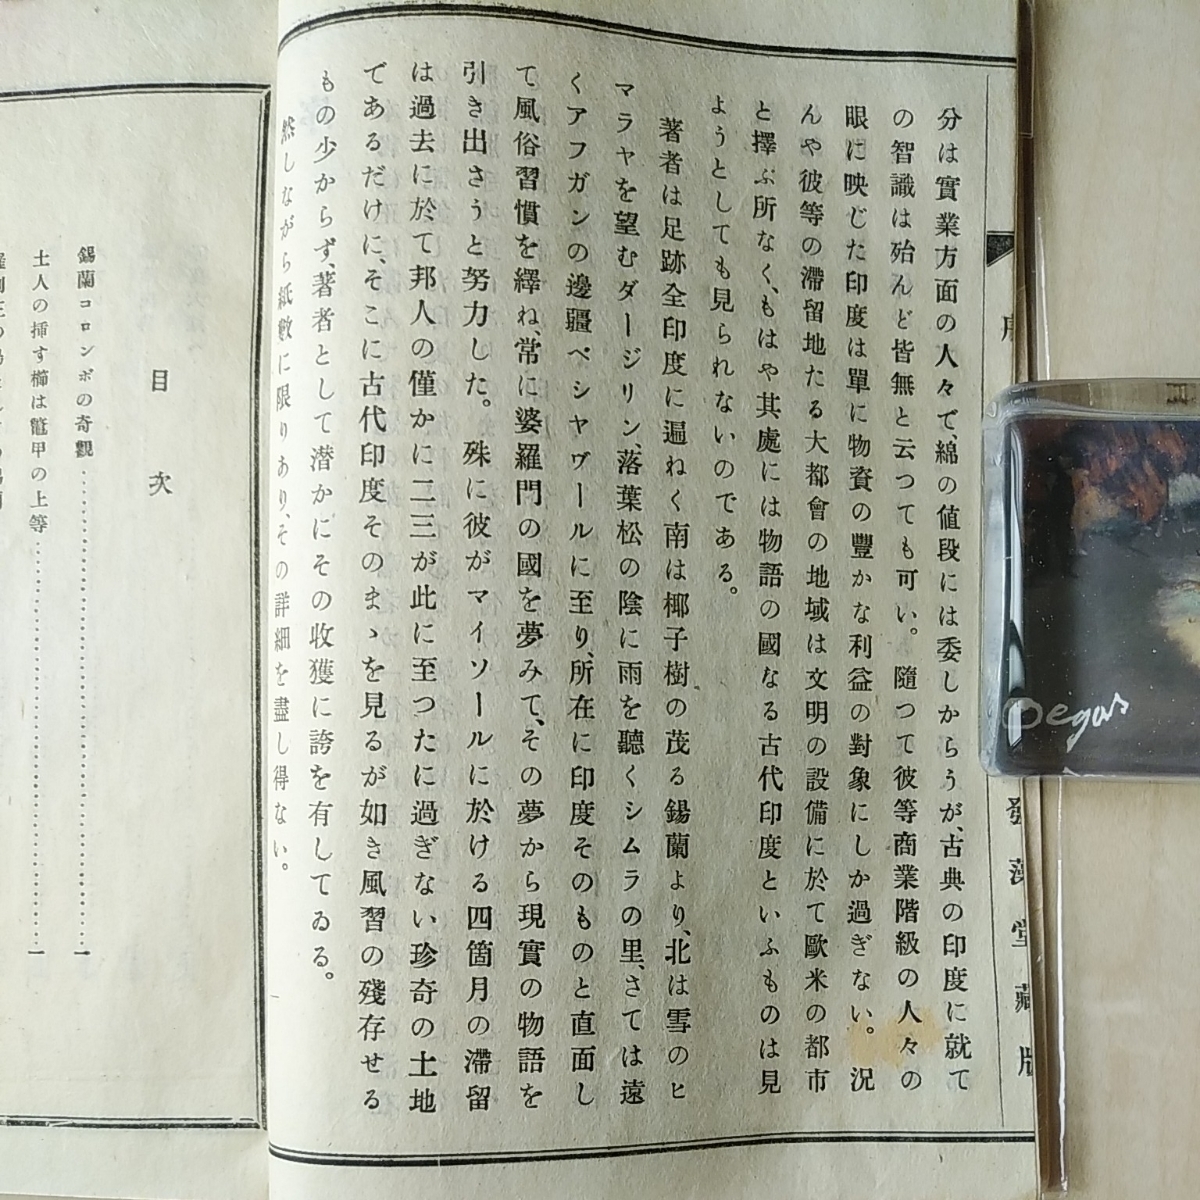 分は實業方面の人々で、綿の値段には委しからうが、古典の印度に就て
の智識は殆んど皆無と云つても可い。隨つて彼等商業階級の人々の
眼に映じた印度は單に物資の豐かな利益の對象にしか過ぎない。況
んや彼等の滯留地たる大都會の地域は文明の設備に於て歐米の都市
と擇ぶ所なく、もはや其處には物語の國なる古代印度といふものは見
ようとしても見られないのである。
著者は足跡全印度に遍ねく南は椰子樹の茂る錫蘭より、北は雪のヒ
マラヤを望むダージリン、落葉松の陰に雨を聽くシムラの里、さては遠
くアフガンの邊疆ペシヤヴールに至り、所在に印度そのものと直面し
て風俗習慣を繹ね、常に婆羅門の國を夢みて、その夢から現實の物語を
引き出さうと努力した。殊に彼がマイソールに於ける四箇月の滯留
は過去に於て邦人の僅かに二三が此に至つたに過ぎない珍奇の土地
であるだけに、そこに古代印度そのまゝを見るが如き風習の殘存せる
もの少からず、著者として潜かにその收獲に誇を有してゐる。
然しながら紙數に限りあり、その詳細を盡し得ない。
序
發藻堂藏版
目次
錫蘭コロンボの奇觀……………一
土人の挿す櫛は鼈甲の上等……………一
Pegas